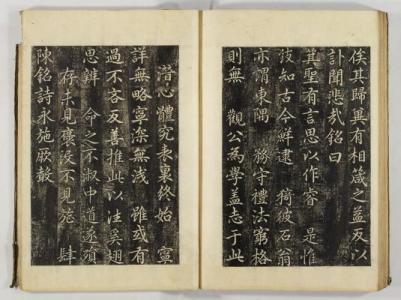 俟其歸與有相箴之益反以
訃聞悲哉銘曰
箕聖有言思以作睿 是惟
汲知古今鮮逮 猗彼石翁
亦謂東隅 務守禮法窮格
則無 觀公為學蓋志于此
潛心體究表裏終始 寧
詳無略寧深無淺 雖或有
過不吝反善推此以往奚翅
思辨 命之不淑中道遂殞
存未見襃沒不見 肆
陳銘詩永施厥